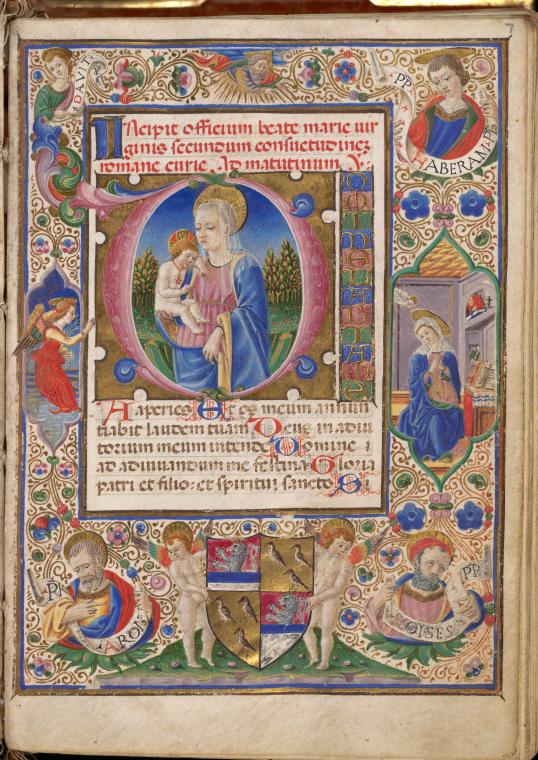 7
DAVIT
PP
HABERAAM
Incipit officium beate marie uir
ginis secundum consuetudinez
romane curie. Ad matutinum. V.
OMINE LA
Aperies. Et os meum annun
tiabit laudem tuam Deus in adiu
torium meum intende Domine
ad adiuuandum me festina Gloria
patri et filio: et spiritui sancto Si
PP
ARON
PP
MOISES